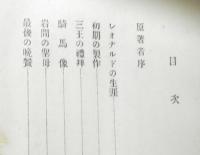 目次
原著者序
レオナルドの生涯
初期の製作
三王の禮拜
騎馬像
岩間の聖母
最後の晩餐